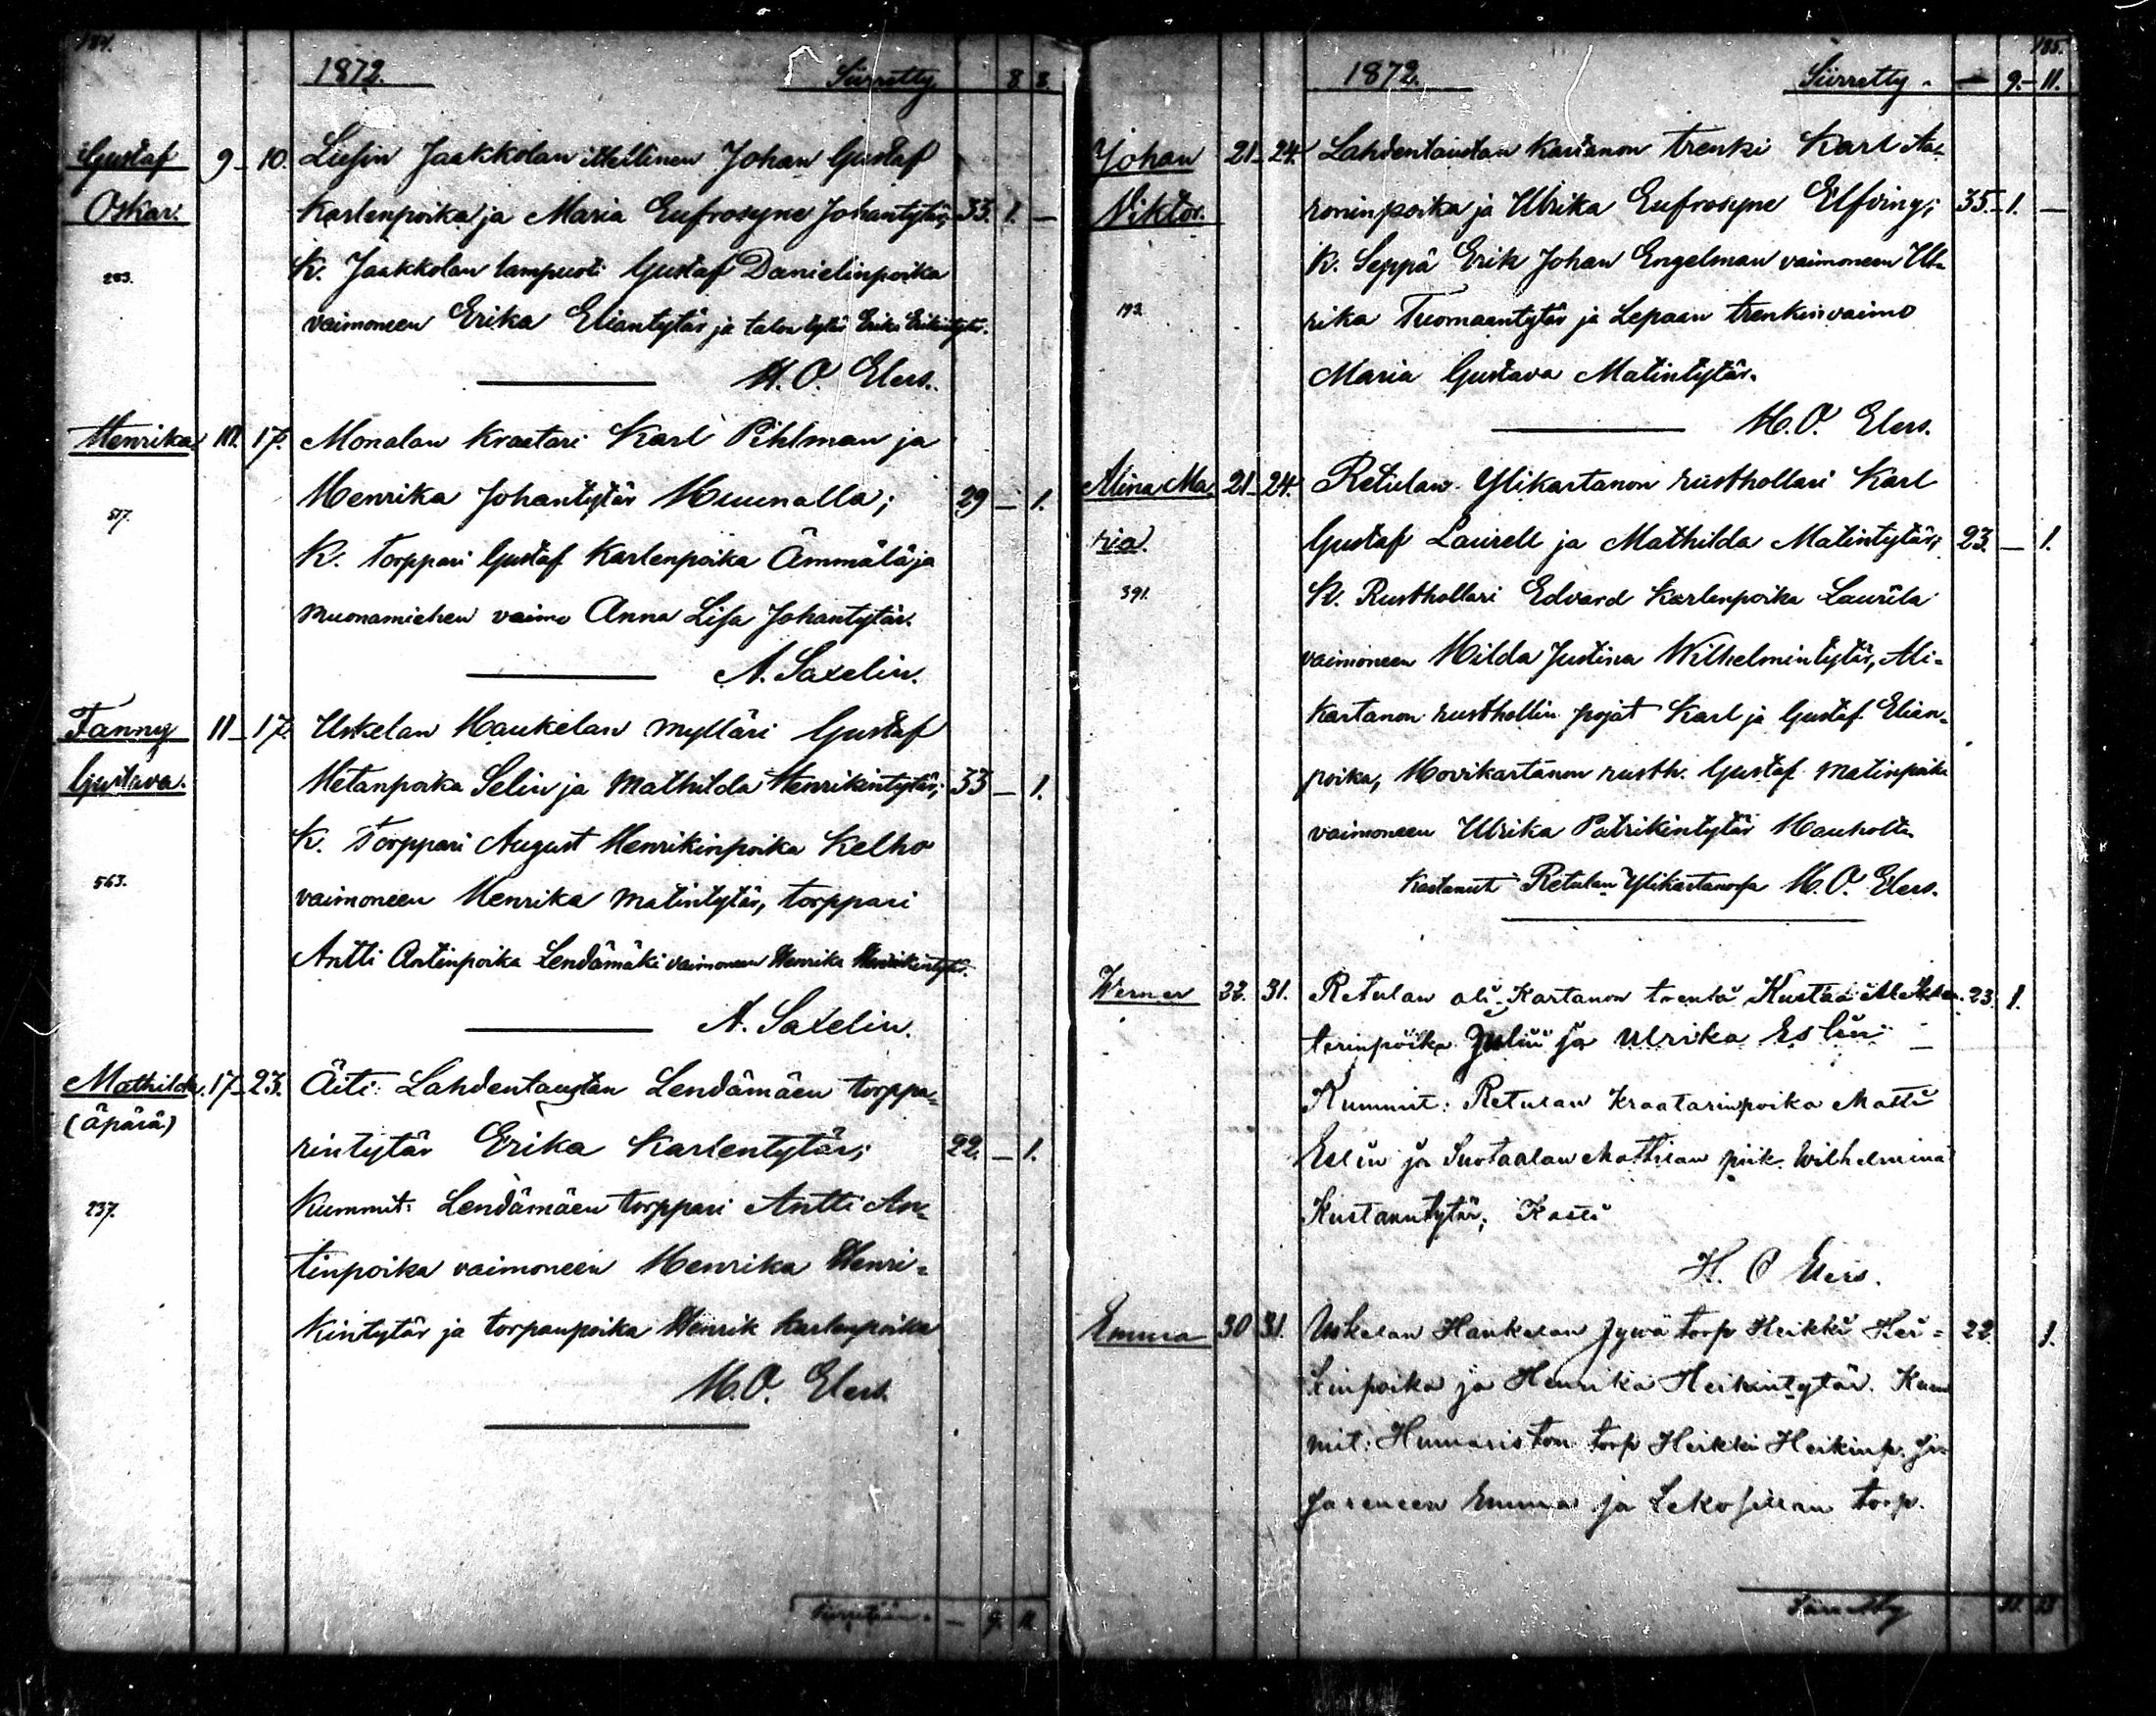 184.
1872. Siirretty 8. 8.
Gustaf 9 - 10. Lusin Jaakkolan itellinen Johan Gustaf
Oskar. Karlenpoika ja Maria Eufrosyne Johantytär; 33. 1. —
K. Jaakkolan lampuoti Gustaf Danielinpoika
283.
vaimoneen Erika Eliantytär ja talon tytär Erika Erikintytär.
H. O. Elers.
Henrika 17. Monalan kraatari Karl Pihlman ja
Henrika Johantytär Huunalla; 29 — 1.
517.
K. Torppari Gustaf Karlenpoika Ämmälä ja
muonamiehen vaimo Anna Lisa Johantytär.
A. Saxelin.
Fanny 11 - 17. Uskelan Haukelan mylläri Gustaf
Gustava. Selin ja Mathilda Henrikintytär; 33 — 1.
K. Torppari August Henrikinpoika Kelho
563.
vaimoneen Henrika Matintytär, torppari
Antti Antinpoika Lendämäki vaimoneen Henrika Henrikintytär.
A. Saxelin.
Mathilda. 17 - 23. Äiti: Lahdentaustan Lendämäen torppa-
(äpärä)
rintytär Erika Karlentytär; 22. — 1.
237.
Kummit: Lendämäen torppari Antti An-
tinpoika vaimoneen Henrika Henri-
kintytär ja torpanpoika Henrik Karlenpoika
H. O. Elers.
Siirretään. — 9. 11.
185.
1872. Siirretty. — 9. — 11.
Johan 21 - 24. Lahdentaustan Kartanon trenki Karl Aa-
Viktor. roninpoika ja Ulrika Eufrosyne Elfving; 35. — 1. —
K. Seppä Erik Johan Engelman vaimoneen Ul-
193.
rika Tuomaantytär ja Lepaan trenkin vaimo
Maria Gustava Matintytär.
H. O. Elers.
Alina Ma- 21 - 24. Retulan Ylikartanon rusthollari Karl
ria. Gustaf Laurell ja Mathilda Matintytär; 23. — 1.
391.
K. Rusthollari Edvard Karlenpoika Laurila
vaimoneen Hilda Justina Wilhelmintytär, Ali-
kartanon rusthollin pojat Karl ja Gustaf Elian-
poika, Hovikartanon rusth. Gustaf Matinpoika
vaimoneen Ulrika Patrikintytär Hauholta
Kastanut Retulan Ylikartanosa H. O. Elers.
Werner 22. 31. Retulan ali-Kartanon Kustaa 23. 1.
ja Ulrika Eslin —
Kummit: Retulan Kraatarinpoika Matti
Eslin ja Suotaalan Mattilan piik. Wilhelmina
Kustaantytär; Kasti
H. O Elers.
Emma 30 31. Uskelan Haukelan torp Heikki Hei- 22. 1.
kinpoika ja Henrika Heikintytär. Kum
mit: Humariston torp Heikki Heikinp. si-
sareneen Emma ja torp.
Siirretty